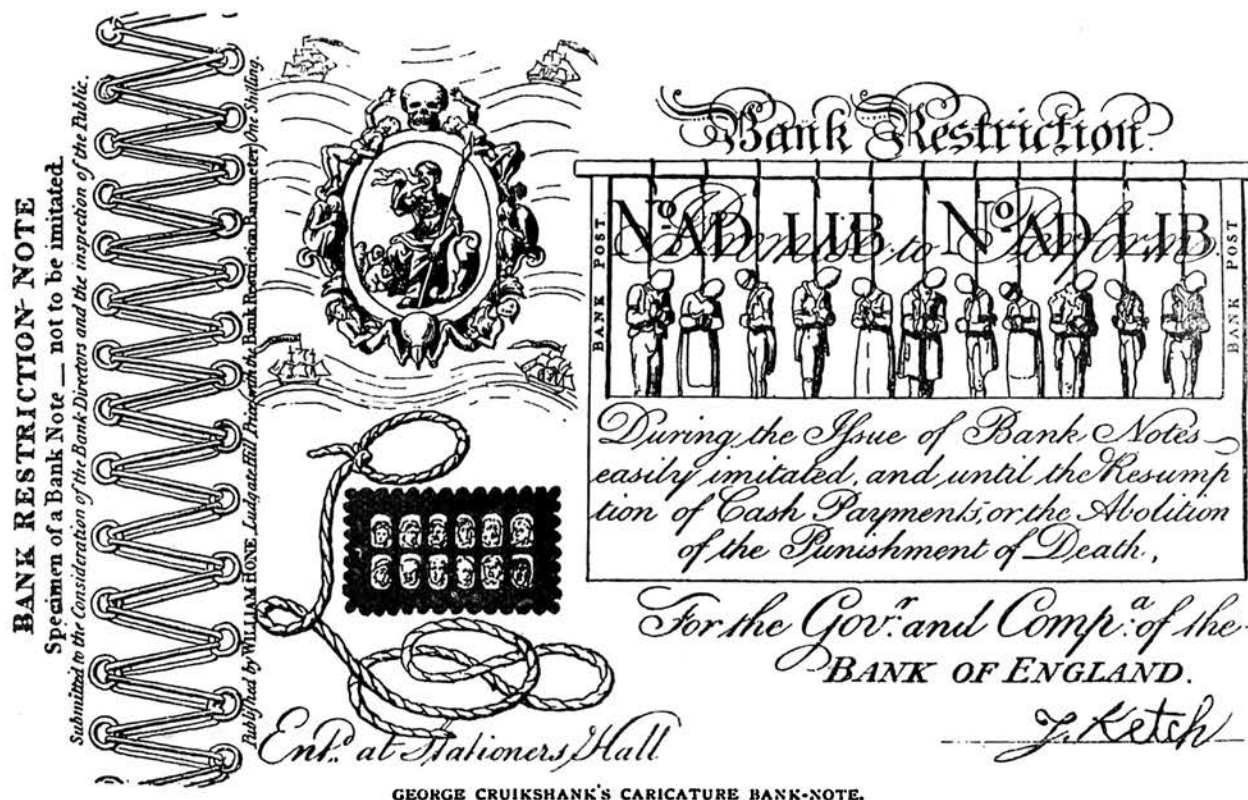 BANK RESTRICTION NOTE
Specimen of a Bank Note — not to be imitated.
Submitted to the Consideration of the Bank Directors and the inspection of the Public.
Published by WILLIAM HONE, Ludgate Hill. Price with the Bank Restriction Barometer, One Shilling.
Bank Restriction.
BANK POST
No. AD LIB No. AD LIB
Promise to Perform
BANK POST
During the Issue of Bank Notes
easily imitated, and until the Resump
tion of Cash Payments, or the Abolition
of the Punishment of Death,
For the Govr. and Compa. of the
BANK OF ENGLAND.
J. Ketch
Entd. at Stationers Hall
GEORGE CRUIKSHANK'S CARICATURE BANK-NOTE.